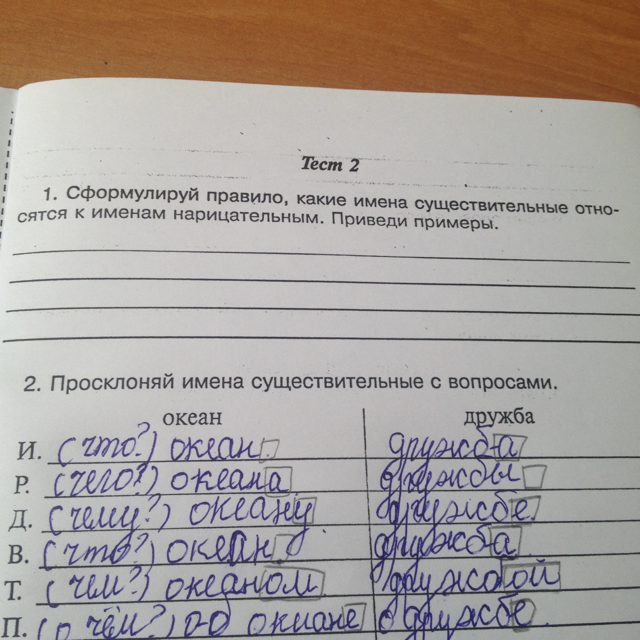 Тест 2
1. Сформулируй правило, какие имена существительные отно-
сятся к именам нарицательным. Приведи примеры.
2. Просклоняй имена существительные с вопросами.
океан дружба
И. (что?) океан дружба
Р. (чего?) океана дружбы
Д. (чему?) океану дружбе
В. (что?) океан дружба
Т. (чем?) океаном дружбой
П. (о чём?) об океане о дружбе